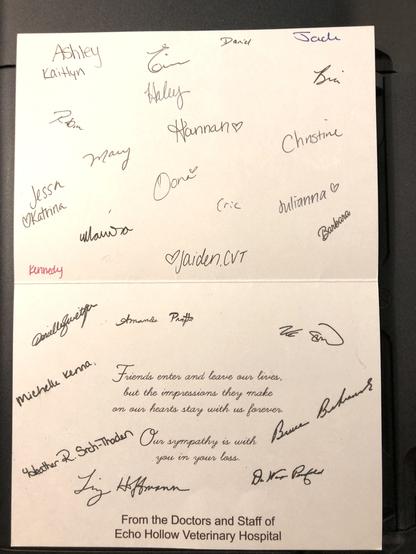 Ashley
Kaitlyn
Daniel
Jade
Haley
Bri
Robin
Hannah♡
Christine
Mary
Jessa
♡Katrina
Oona
Cric
Julianna♡
Marissa
Barbara
♡Jaiden, CVT
Kennedy
Amanda
Michelle Kenna
Friends enter and leave our lives,
but the impressions they make
on our hearts stay with us forever.
Our sympathy is with
you in your loss.
Bruce
Heather R.
Liz Hoffmann
From the Doctors and Staff of
Echo Hollow Veterinary Hospital